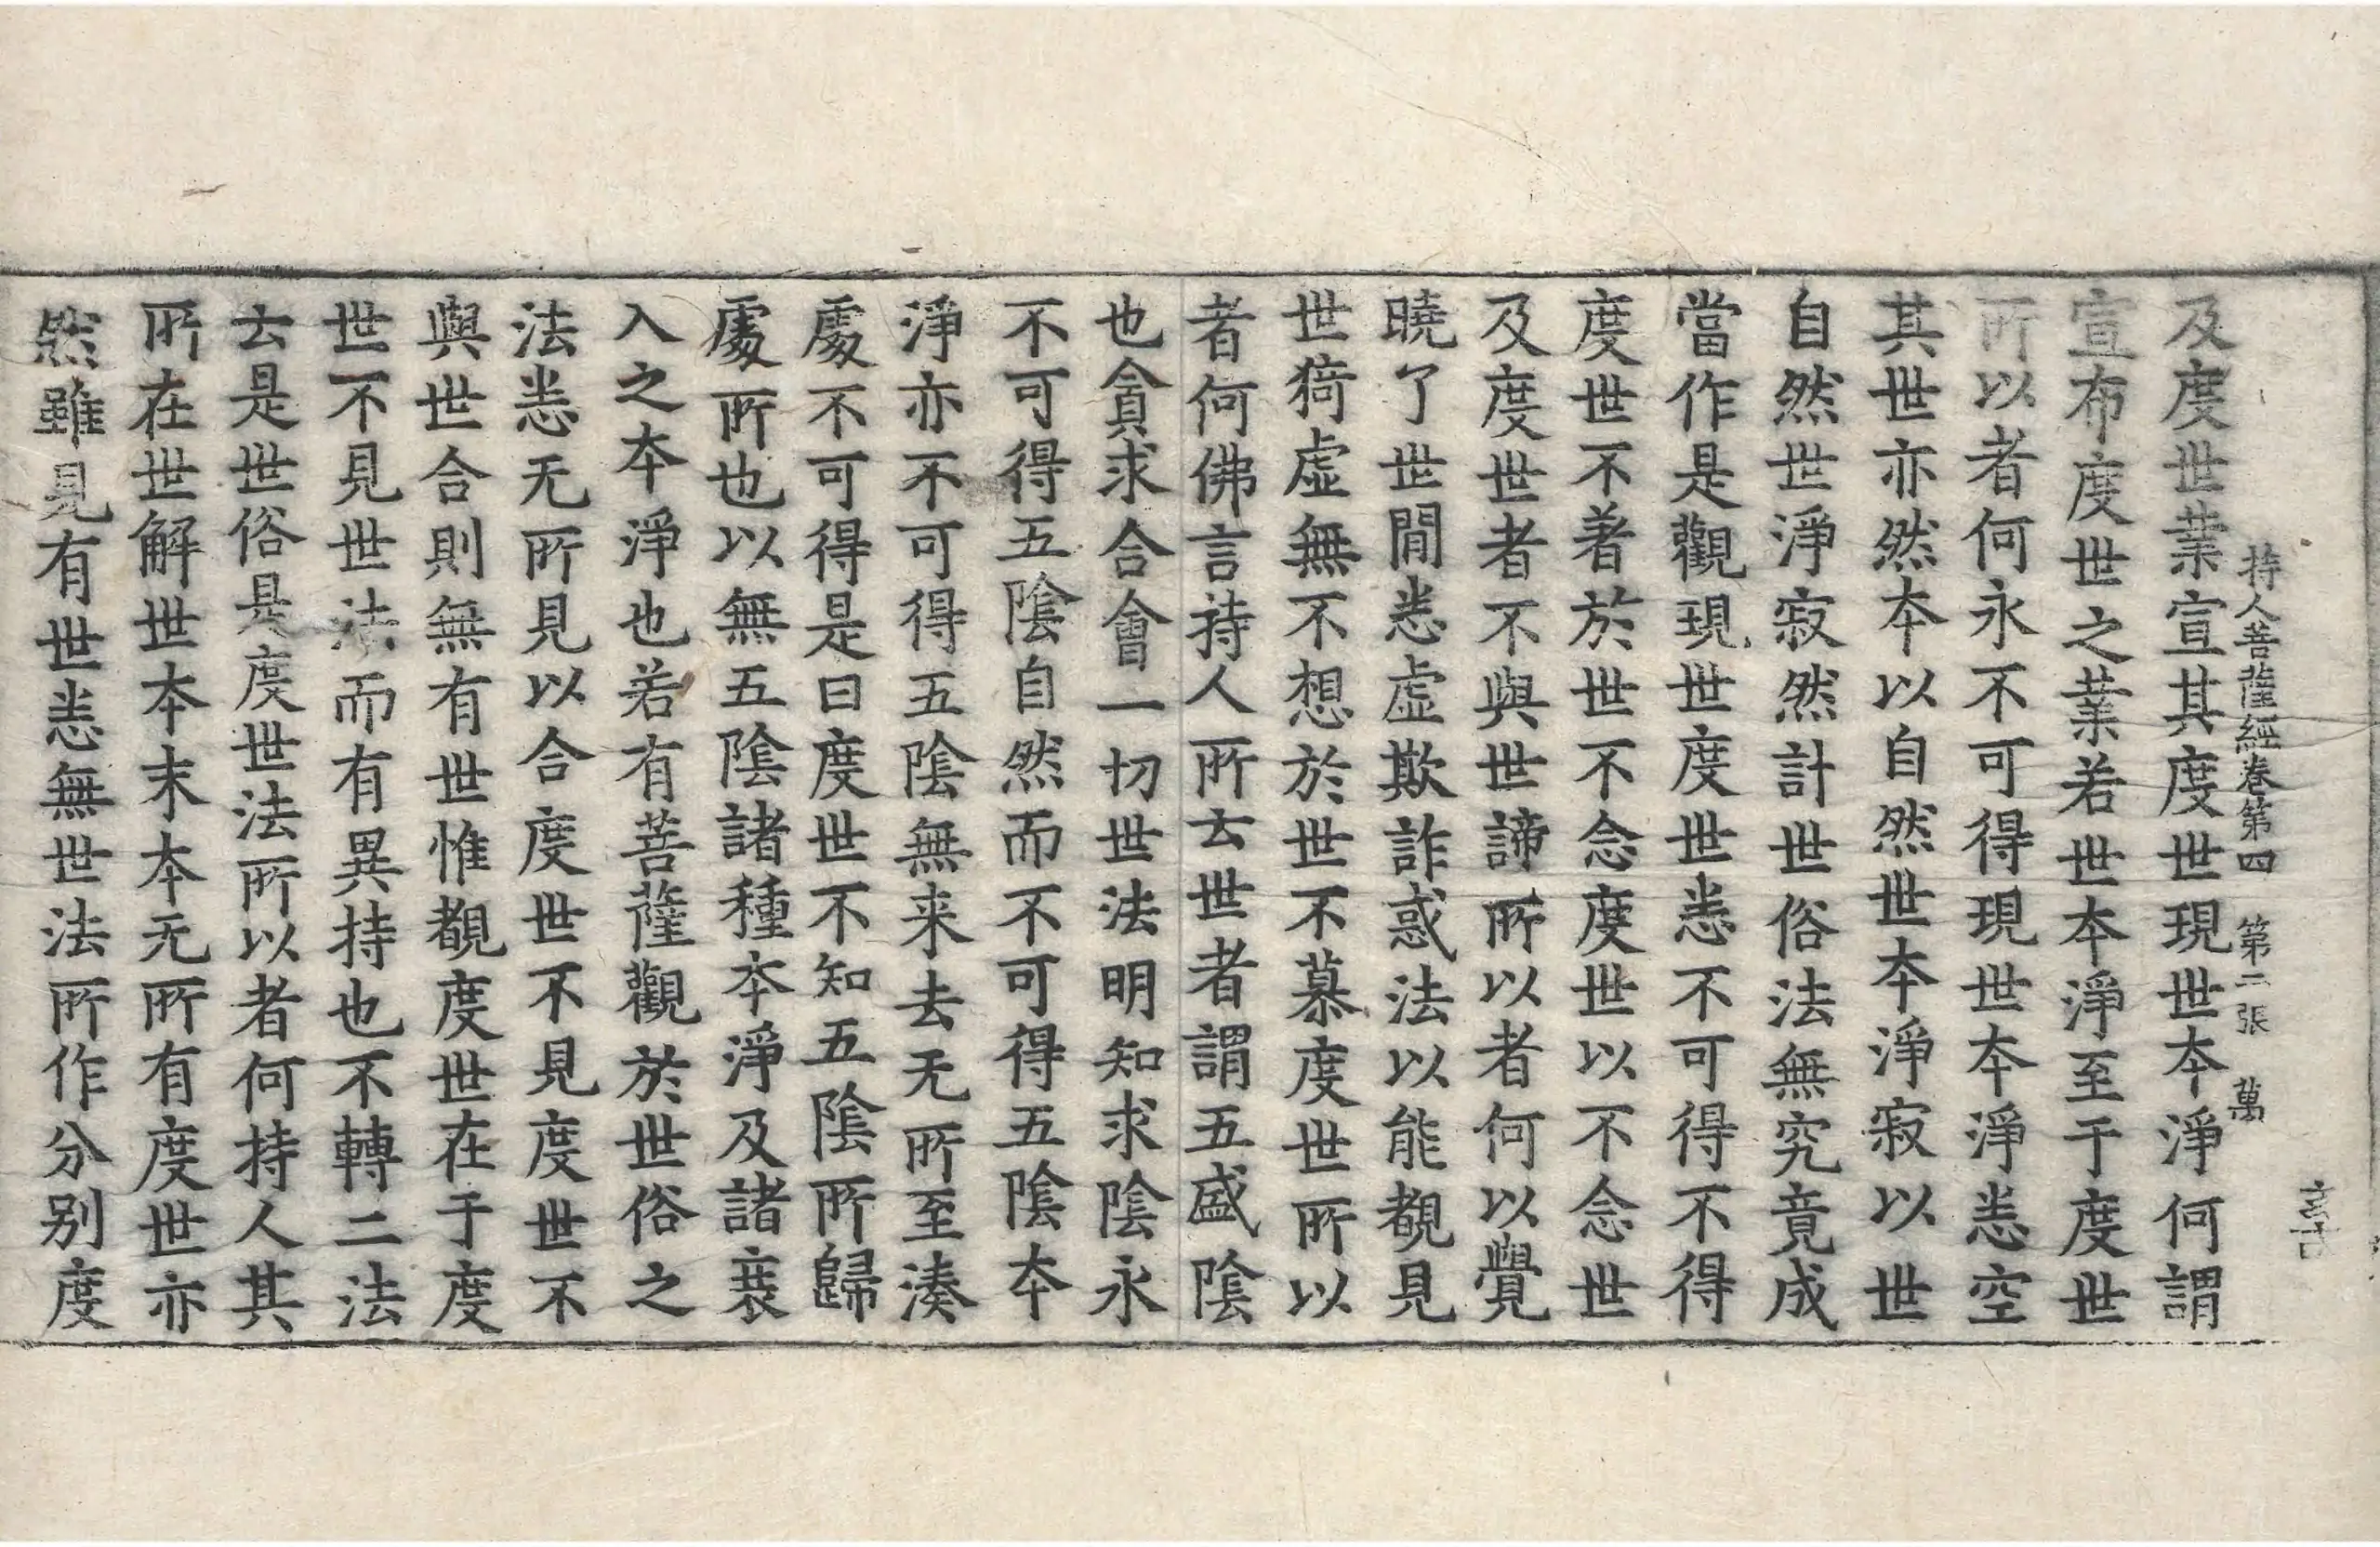 持人菩薩經卷第四　第二張　萬
及度世業宣其度世現世本淨何謂
宣布度世之業若世本淨至于度世
所以者何永不可得現世本淨悉空
其世亦然本以自然世本淨寂以世
自然世淨寂然計世俗法無究竟成
當作是觀現世度世悉不可得不得
度世不著於世不念度世以不念世
及度世者不與世諦所以者何以覺
曉了世閒悉虛欺詐惑法以能覩見
世猗虛無不想於世不慕度世所以
者何佛言持人所云世者謂五盛陰
也貪求合會一切世法明知求陰永
不可得五陰自然而不可得五陰本
淨亦不可得五陰無来去无所至湊
處不可得是曰度世不知五陰所歸
處所也以無五陰諸種本淨及諸衰
入之本淨也若有菩薩觀於世俗之
法悉无所見以合度世不見度世不
與世合則無有世惟覩度世在于度
世不見世法而有異持也不轉二法
云是世俗是度世法所以者何持人其
所在世解世本末本无所有度世亦
然雖見有世悉無世法所作分別度